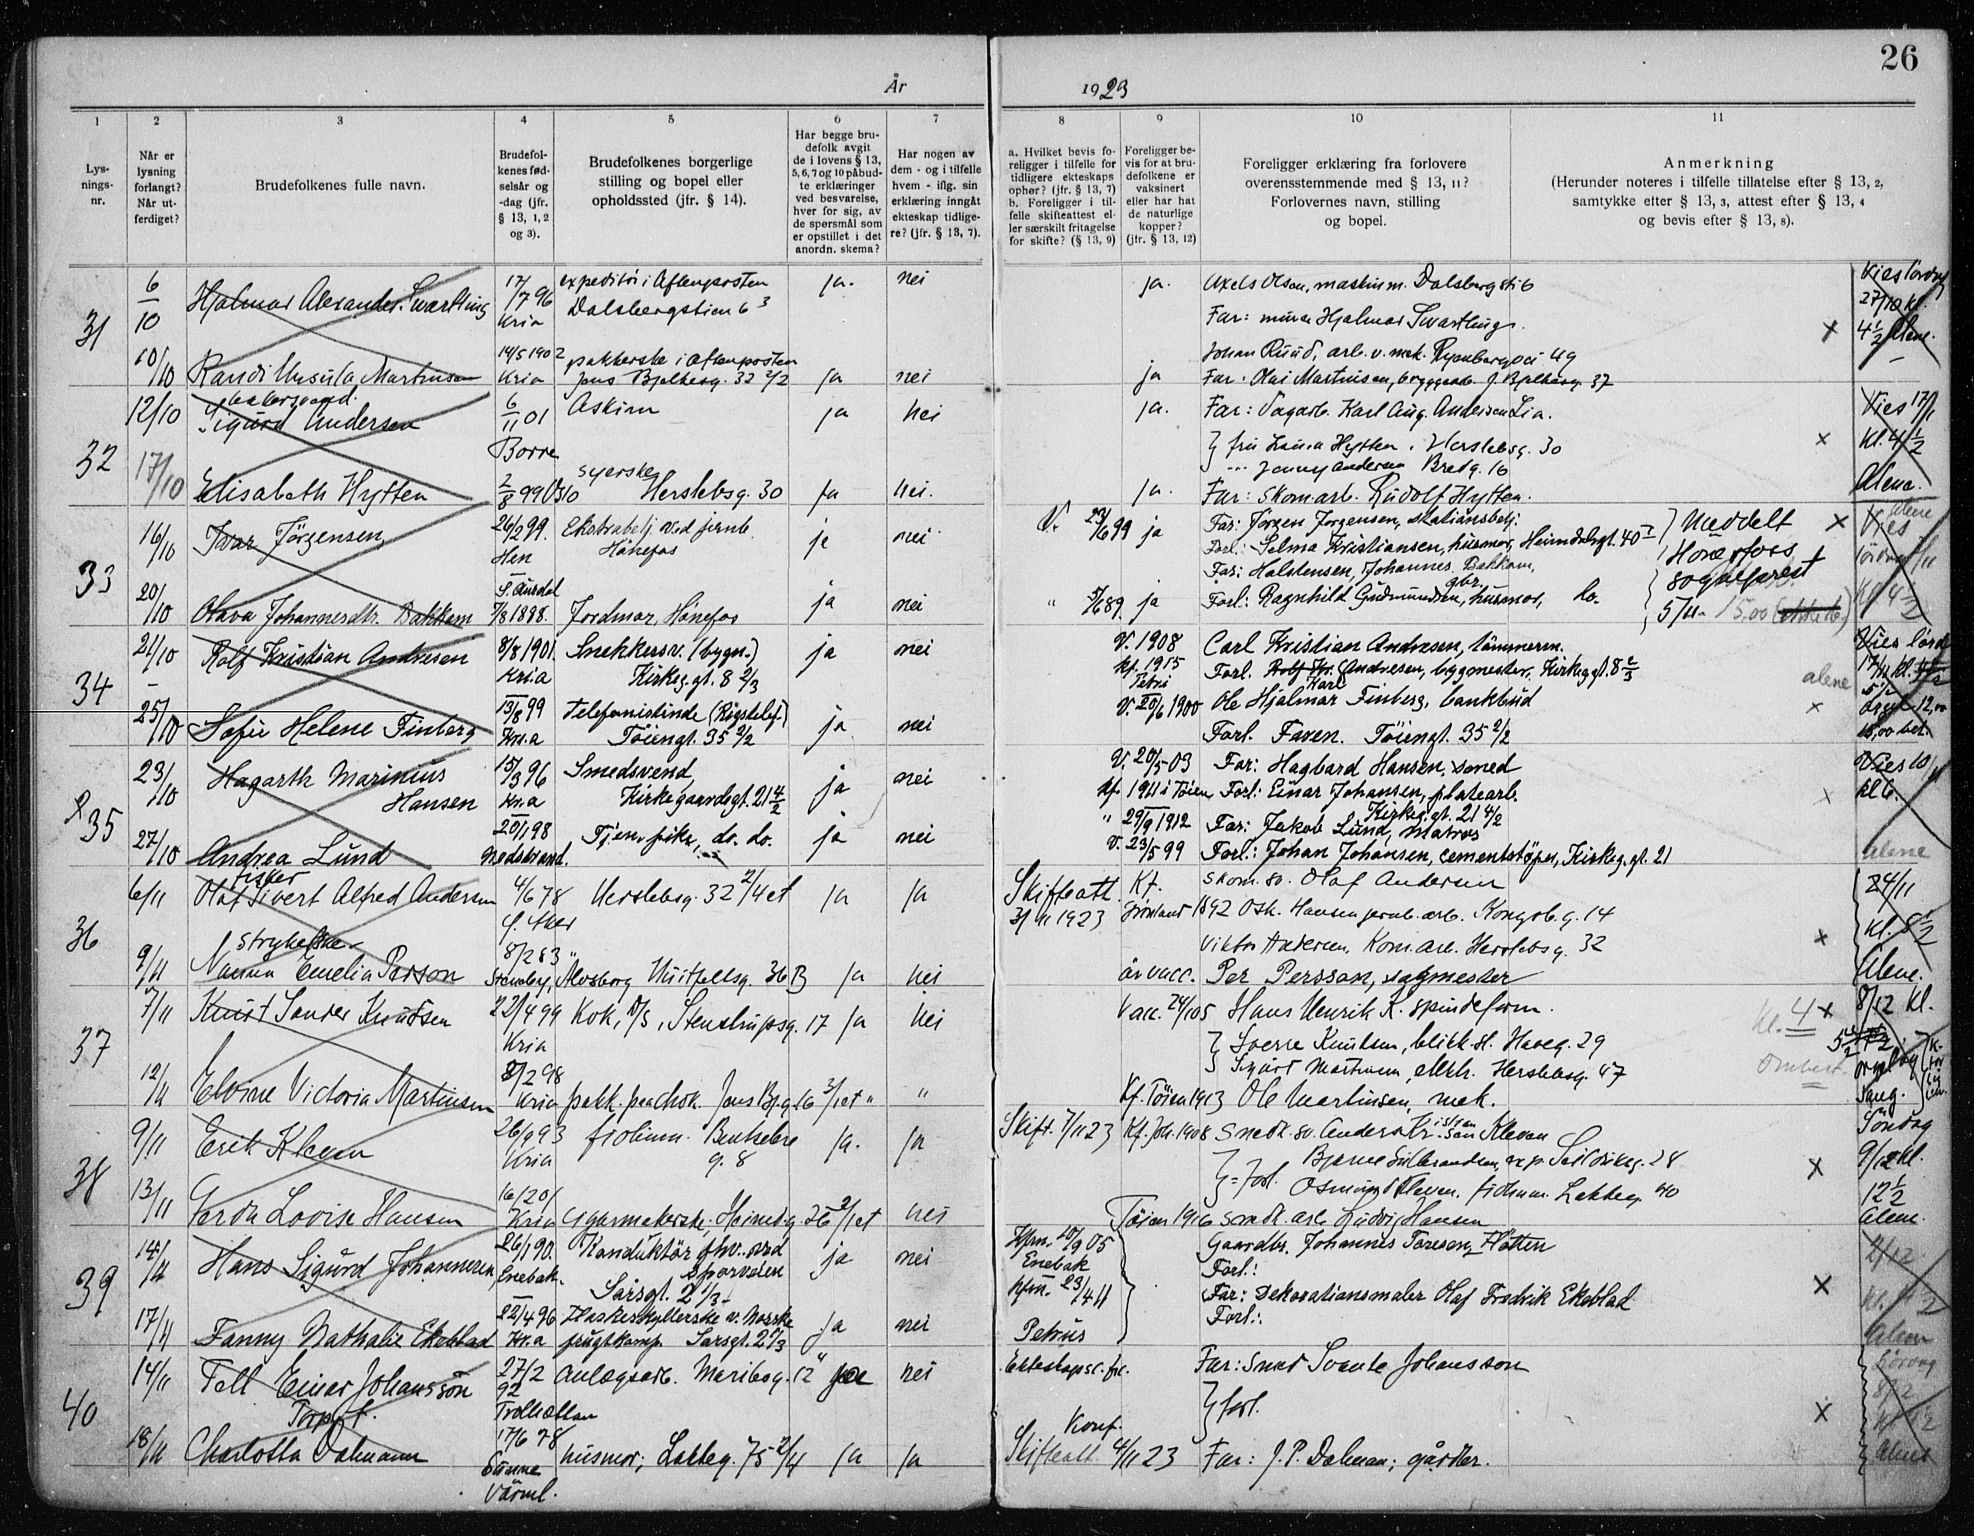 26
År 1923
1 2 3 4 5 6 7 8 9 10 11
Lys-
nings-
nr.
Når er
lysning
forlangt?
Når ut-
ferdiget?
Brudefolkenes fulle navn.
Brudefol-
kenes fød-
selsår og
-dag (jfr.
§ 13, 1, 2
og 3).
Brudefolkenes borgerlige
stilling og bopel eller
opholdssted (jfr. § 14).
Har begge bru-
defolk avgit
de i lovens § 13,
5, 6, 7 og 10 påbud-
te erklæringer
ved besvarelse,
hver for sig, av
de spørsmål som
er opstillet i det
anordn. skema?
Har nogen av
dem - og i tilfelle
hvem - iflg. sin
erklæring inngåt
ekteskap tidlige-
re? (jfr. § 13, 7).
a. Hvilket bevis fo-
religger i tilfelle for
tidligere ekteskaps
ophør? (jfr. § 13, 7)
b. Foreligger i til-
felle skifteattest el-
ler særskilt fritagelse
for skifte? (§ 13, 9)
Foreligger be-
vis for at bru-
defolkene er
vaksinert
eller har hat
de naturlige
kopper?
(jfr. § 13, 12)
Foreligger erklæring fra forlovere
overensstemmende med § 13, 11?
Forlovernes navn, stilling
og bopel.
Anmerkning
(Herunder noteres i tilfelle tillatelse efter § 13, 2,
samtykke efter § 13, 3, attest efter § 13, 4
og bevis efter § 13, 8).
31 6/10 Hjalmar Alexander Swartling 17/7 96 Kria expeditør i Aftenposten Dalsbergstien 6 3 ja. nei ja. Axel Olsen, maskinm. Dalsbergsti 6
Far: murer Hjalmar Swartling.
27/10 kl. 4 1/2 Alene.
10/10 Randi Ursula Martinsen 14/5 1902 Kria pakkerske i Aftenposten Jens Bjelkesg. 32 2/2 ja nei ja Johan Ruud, arb. v. mek.
Far: Olai Martinsen, bryggearb. J. Bjelkesg. 37
32 12/10 bakersvend Sigurd Andersen 6/11 01 Borre Askim ja nei ja. Far: Karl Aug. Andersen Lia.
Vies 17/11 kl. 4 1/2 Alene.
Hytten, Herslebsg. 30
Jenny Andersen Bredg. 16
17/10 Elisabeth Hytten 2/8 99 syerske Herslebsg. 30 ja nei. ja. Far: Skomarb. Rudolf Hytten.
33 16/10 Ivar Jörgensen 26/2 99. Hen Ekstrabetj. ved jernb. Hönefos ja nei V. ja Far: Jörgen Jorgensen, stationsbetj.
Forl.: Selma Kristiansen, husmor, Heimdalsgt. 40
Meddelt Hönefoss sogneprest 5/11.
Far: Halstensen, Johannes Bakkom, gbr.
20/10 Olava Johannesdtr. Bakkom S. Aurdal 7/8 1888. Jordmor, Hönefos ja nei ja Forl.: Ragnhild Gudmundsen, husmor, do.
34 21/10 Rolf Kristian Andresen 8/8 1901. Kr.a Snekkersv. (bygn.) Kirkeg.gt. 8 2/3 ja nei V. 1908 kf. 1915 Petri Carl Kristian Andresen, tömmerm.
Forl. Karl Andresen, byggmester, Kirkeg.gt. 8 2/3
alene
25/10 Sofie Helene Finberg 13/8 99 Kr.a Telefonistinde (Rigstelef.) Töiengt. 35 2/2 ja nei V. 20/6 1900 Ole Hjalmar Finberg, bankbud
Forl. Faren. Töiengt. 35 2/2
35 23/10 Hagarth Marinius Hansen 15/3 96 Kr.a Smedsvend, Kirkegaardsgt. 21 4/2 ja nei V. 20/5 03 kf. 1911 i Töien Far: Hagbard Hansen, smed
Forl: Einar Johansen, platearb. Kirkeg.gt. 21 4/2
Vies 10/11 kl 6. alene
27/10 Andrea Lund 20/1 98 Nedstrand. Tjen. pike, do. do. ja nei 29/9 1912 V. 23/5 99 Far: Jakob Lund, matros
Forl.: Johan Johansen, cementstöper, Kirkeg.gt. 21
36 6/11 fisker Olaf Sivert Alfred Andersen 4/6 78 Herslebsg. 32 2/4 et ja ja Skifteatt. 3/11 1923 Kf. Grønland 1892 skom.sv. Olaf Andersen
Osk. Hansen jernb. arb. Kongsb.g. 14
Viktor Andersen, Kom.arb. Herslebsg. 32
24/11 kl. 5 1/2 Alene.
9/11 strykerske Nanna Emelia Person 8/2 83 Huitfeltsg. 36 B ja nei vacc. Per Persson, sagmester
37 7/11 Knut Sander Knudsen 22/4 99 Kria Kok, D/S, Stenstrupsg. 17 ja nei Vacc. 24/1 05 Hans Henrik K. spindeform.
Sverre Knutsen, blikk.sl. Haveg. 29
Sigurd Martinsen, elktr. Herslebsg. 47
kl. 4 8/12 kl. 5 1/2 orgel og sang.
12/11 Elvine Victoria Martinsen 8/2 98 Kria pakk. peachok. Jens Bj.g. 16 3/1 et " " Kf. Töien 1913 Ole Martinsen, mek.
38 9/11 Erik Kleven 26/9 93 Kria fiolinm. Bentsebro g. 8 ja. ja Skift. 7/11 23 Kf. Joh. 1908 Snedk. sv. Anders Kristiansen Kleven
Forl. Bjarne Gulbrandsen Seilduksg. 28
Osmund Kleven, fiolinm. Lakkeg. 40
Söndag 9/12 kl. 12 1/2 alene.
13/11 Gerda Lovise Hansen 16/2 01 Kria Cigarmakerske, Heimd.g. 26 2/1 et nei Töien 1916 Snedk. arb Ludvig Hansen
39 14/11 Hans Sigurd Johannesen, 26/1 90. Enebak. Konduktör v. Sporveien Sarsgt. 2 1/3 ja nei Kfm. 10/9 05 Enebak Gaardbr. Johannes Toresen Flötten
Forl.:
17/11 Fanny Nathalie Ekeblad 22/4 96 Kr.a Flaskeskyllerske v. Norske frugtkomp. Sarsgt. 2 1/3 ja nei Kfm. 23/4 11 Petrus Far: Dekorationsmaler Olaf Fredrik Ekeblad
Forl.:
40 14/11 Tell Einar Johansson Torp f. 27/2 92 Trollhättan anlægsarb. Maribog. 12 ja nei Far: Smed Svante Johansson
forl.
18/11 Charlotta Dalmann 17/6 78 Sunne Värml. husmor; Lakkeg. 75 2/4 ja ja Skifteatt. 4/11 23 Konf. Far: J. P. Dalman; gårdbr.